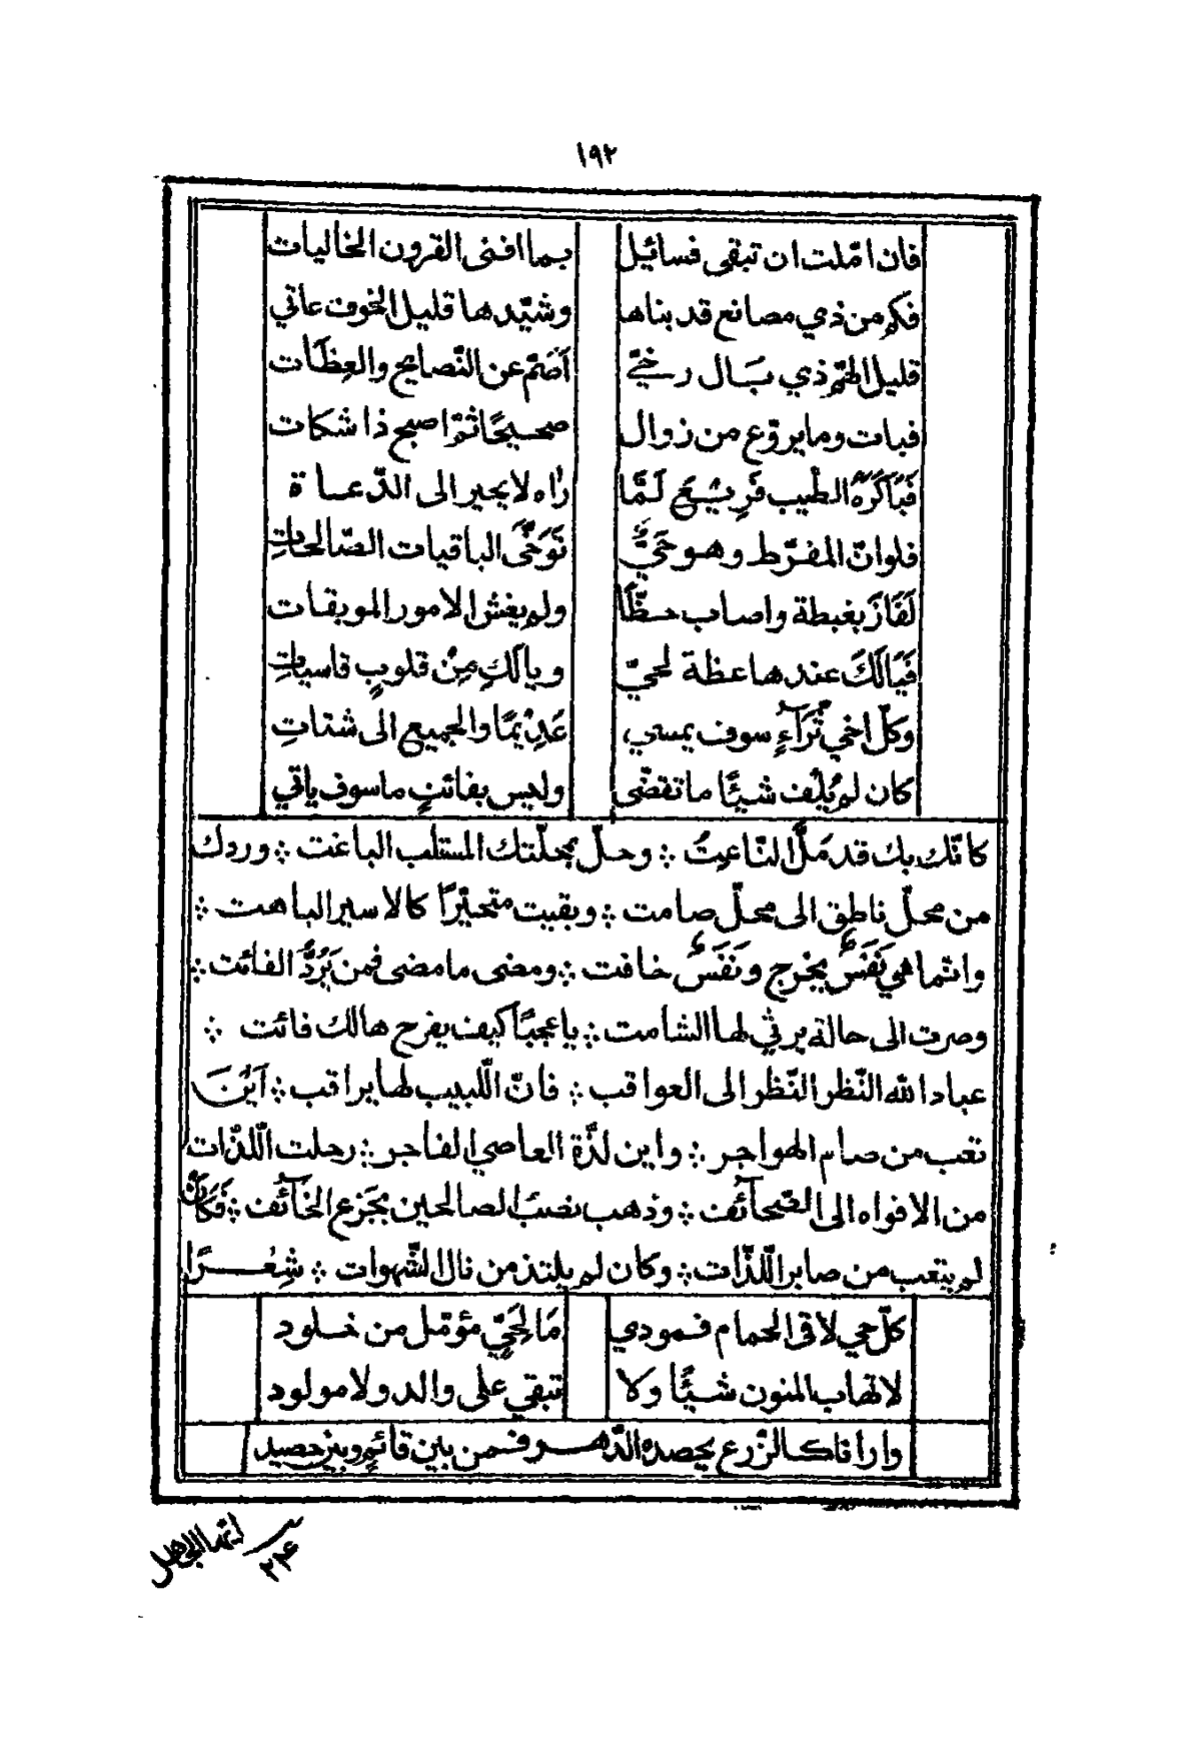 ١٩٢
فان امّلت ان تبقى فسائيل بما افنى القرون الخاليات
فكم من ذي مصانع قد بناها وشيّدها قليل الخوف عاتي
قليل الهمّ ذي بَال رخيّ أَصَمّ عن النّصايح والعِظَات
فبات وما يروّع من زوال صحيحًا ثمّ اصبح ذا شكات
فَبَاكَرَهُ الطّبيب فَرِيثَعَ لَمَّا رٰاه لا يحير الى الدّعاة
فلوانّ المفرّط وهو حَيٌّ تَوَخّىَ الباقيات الصّالحاتِ
لَفَازَ بغبطة واصاب حظًّا ولم يغش الامور الموبقات
فَيَالَكَ عندها عظة لحيّ ويالَكِ مِنْ قلوبٍ قاسياتِ
وكلّ اخي ثُرَآءٍ سوف يمسي عَدِيْمًا والجميع الى شتاتِ
كان لم يُلْف شيئًا ما تقضّى وليس بفائتٍ ما سوف ياتي
كانّك بك قد مَلَّ النّاعِتُ ؞ وحلّ بمحلّتك المستلب الباغت ؞ وردك
من محلّ ناطق الى محلّ صامت ؞ وبقيت متحيّرًا كالاسير الباهت ؞
وانّما هي نَفَسٌ يخرج ونَفَسٌ خافت ؞ ومضى ما مضى فمن يَرُدُّ الفائت ؞
وصرت الى حالة يرثي لها الشامت ؞ يا عجبًا كيف يفرح هالك فائت ؞
عباد الله النّظر النّظر الى العواقب ؞ فانّ اللّبيب لها يراقب ؞ اَيْنَ
تعب من صام الهواجر ؞ واين لذّة العاصي الفاجر ؞ رحلت اللّذّات
من الافواه الى الصّحآئف ؞ وذهب نصَبُ الصالحين بجَزع الخآئف ؞ فَكَانْ
لم يتعب من صابر اللّذّات ؞ وكان لم يلتذ من نال الشّهوات ؞ شِعْرًا
كلّ حي لاقى الحمام فمودي مَا لِحَيٍّ مؤمّل من خلود
لا تهاب المنون شيئًا ولا تبقي على والد ولا مولود
وارانا كالزّرع يحصده الدّهر فمن بين قائم وبين حصيد
انّما الجاهل
٢٤